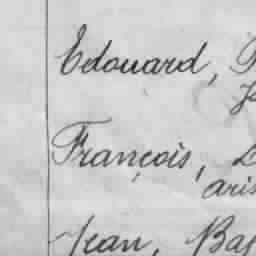 Edouard,
François,
Jean, Bap